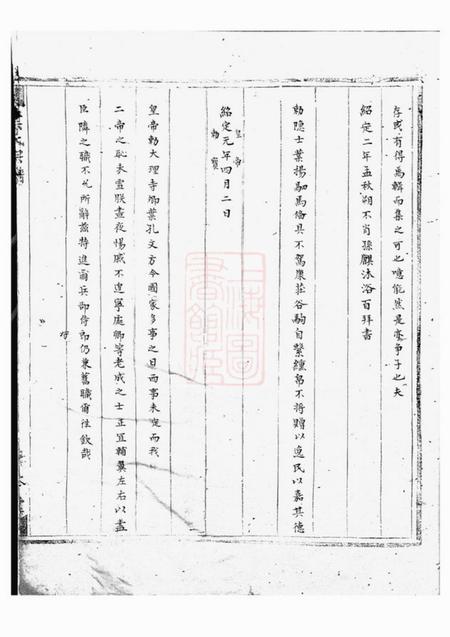 存或有得焉輯而集之可也噫能然是
紹定二年孟秋朔不肖孫麒沐浴百拜書
勅隱士葉揚勵馬偹具不駕廉莊谷駒自縶纁帛不將贈以逸民以嘉其德
紹定元年四月二日
皇帝
勅寶
皇帝勅大理寺卿葉孔文方今國家多事之日而事未定而我
二帝之恥未雪朕晝夜惕戚不遑寧處卿等老成之士正宜輔翼左右以盡
臣隣之職不允所辭茲特進爾兵部侍郎仍兼舊職爾往欽哉
時
葉氏宗譜